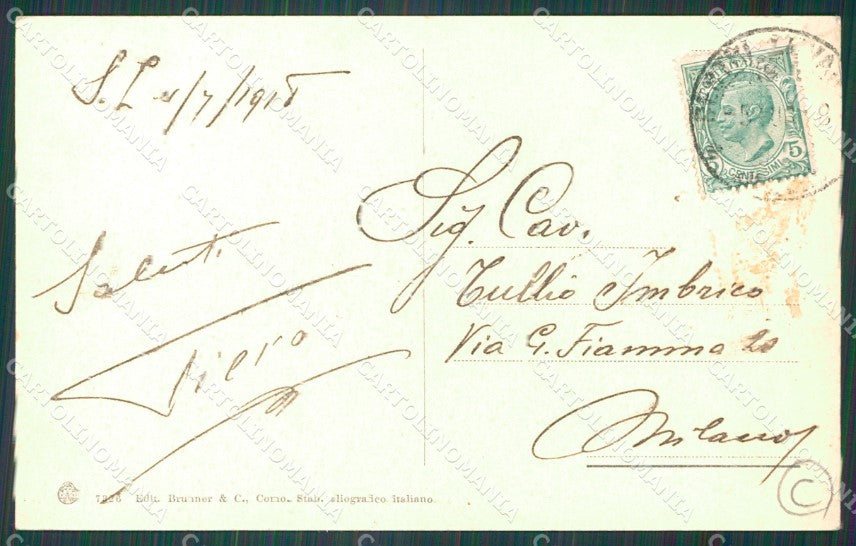 S. L. 4/7/1918
Saluti
Piero
Sig. Cav.
Tullio Imbrico
Via G. Fiamma 20
Milano
5
CENTESIMI
7226 Edit. Brunner & C., Como. Stab. eliografico italiano.
C
CARTOLINOMANIA